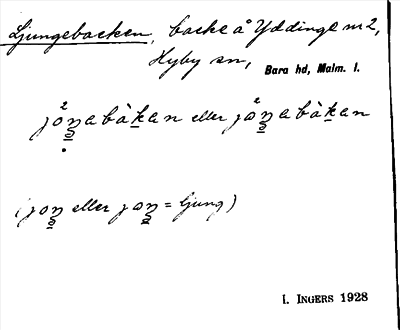 Ljungebacken, backe å Yddinge nr 2,
Hyby sn,
Bara hd, Malm. l.
jo²ŋabàkan eller jo²ŋabàkan
(joŋ eller joŋ = ljung)
I. INGERS 1928